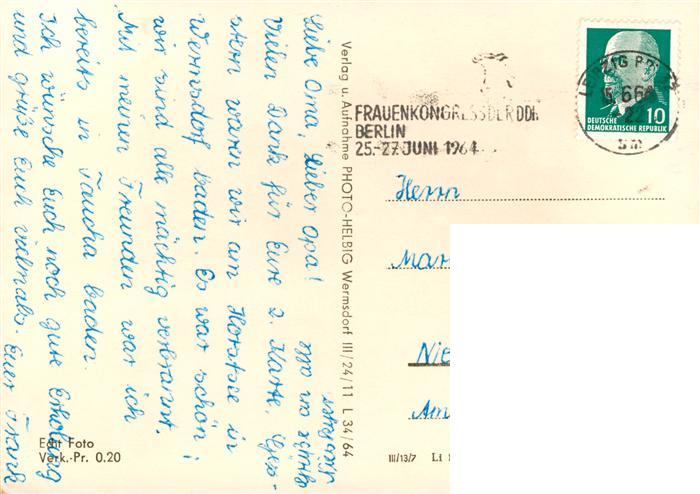 Liebe Oma, lieber Opa!
Vielen Dank für Eure 2. Karte. Ges-
stern waren wir am Horstsee in
Wermsdorf baden. Es war schön!
wir sind alle mächtig verbrannt.
Mit meinen Freunden war ich
bereits in Taucha baden.
Ich wünsche Euch noch gute Erholung
und grüße Euch vielmals. Euer Frank
Echt Foto
Verk.-Pr. 0.20
Verlag u. Aufnahme PHOTO-HELBIG Wermsdorf III/24/11 L 34/64
FRAUENKONGRESS DER DDR
BERLIN
25.-27. JUNI 1964
LEIPZIG
DEUTSCHE
DEMOKRATISCHE REPUBLIK
10
Herrn
Mar
Nie
Am
III/13/7